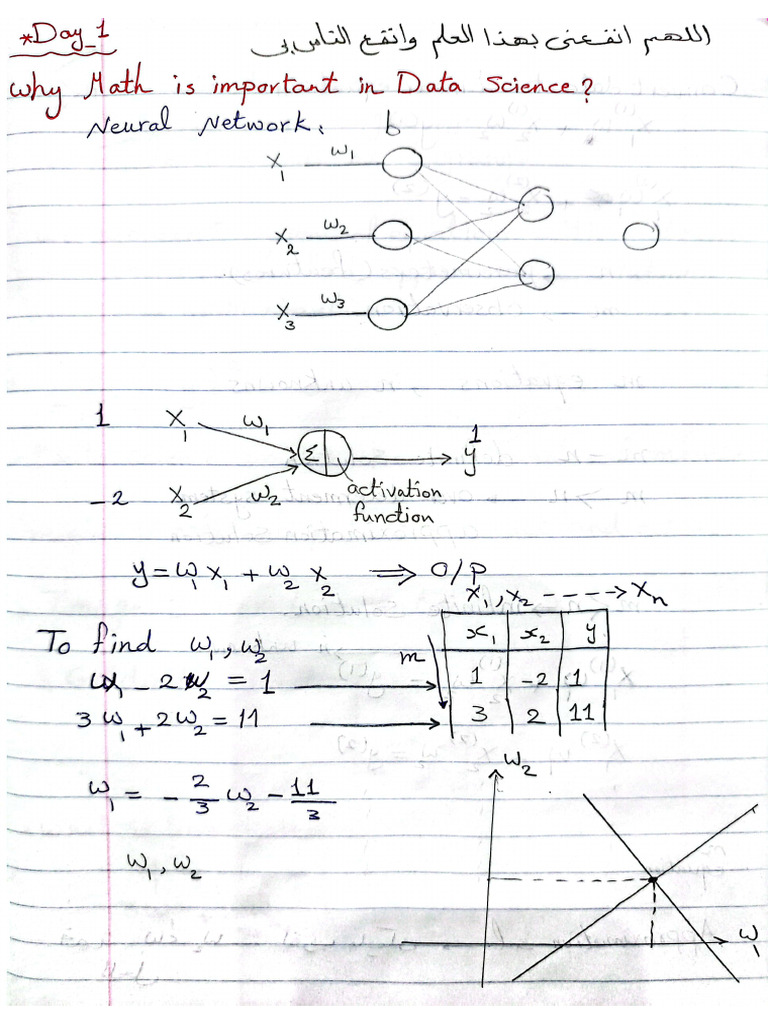 *Day_1
اللهم انفعنى بهذا العلم وانفع الناس بى
Why Math is important in Data Science?
Neural Network: b
X₁ w₁
X₂ w₂
X₃ w₃
1 X₁ w₁ 1
Σ y
-2 X₂ w₂ activation
function
y = w₁ x₁ + w₂ x₂ ⇒ O/P
x₁, x₂ ----→ xₙ
To find w₁, w₂
m x₁ x₂ y
w₁ - 2 w₂ = 1 → 1 -2 1
3 w₁ + 2 w₂ = 11 → 3 2 11
w₂
w₁ = -2/3 w₂ - 11/3
w₁, w₂
w₁